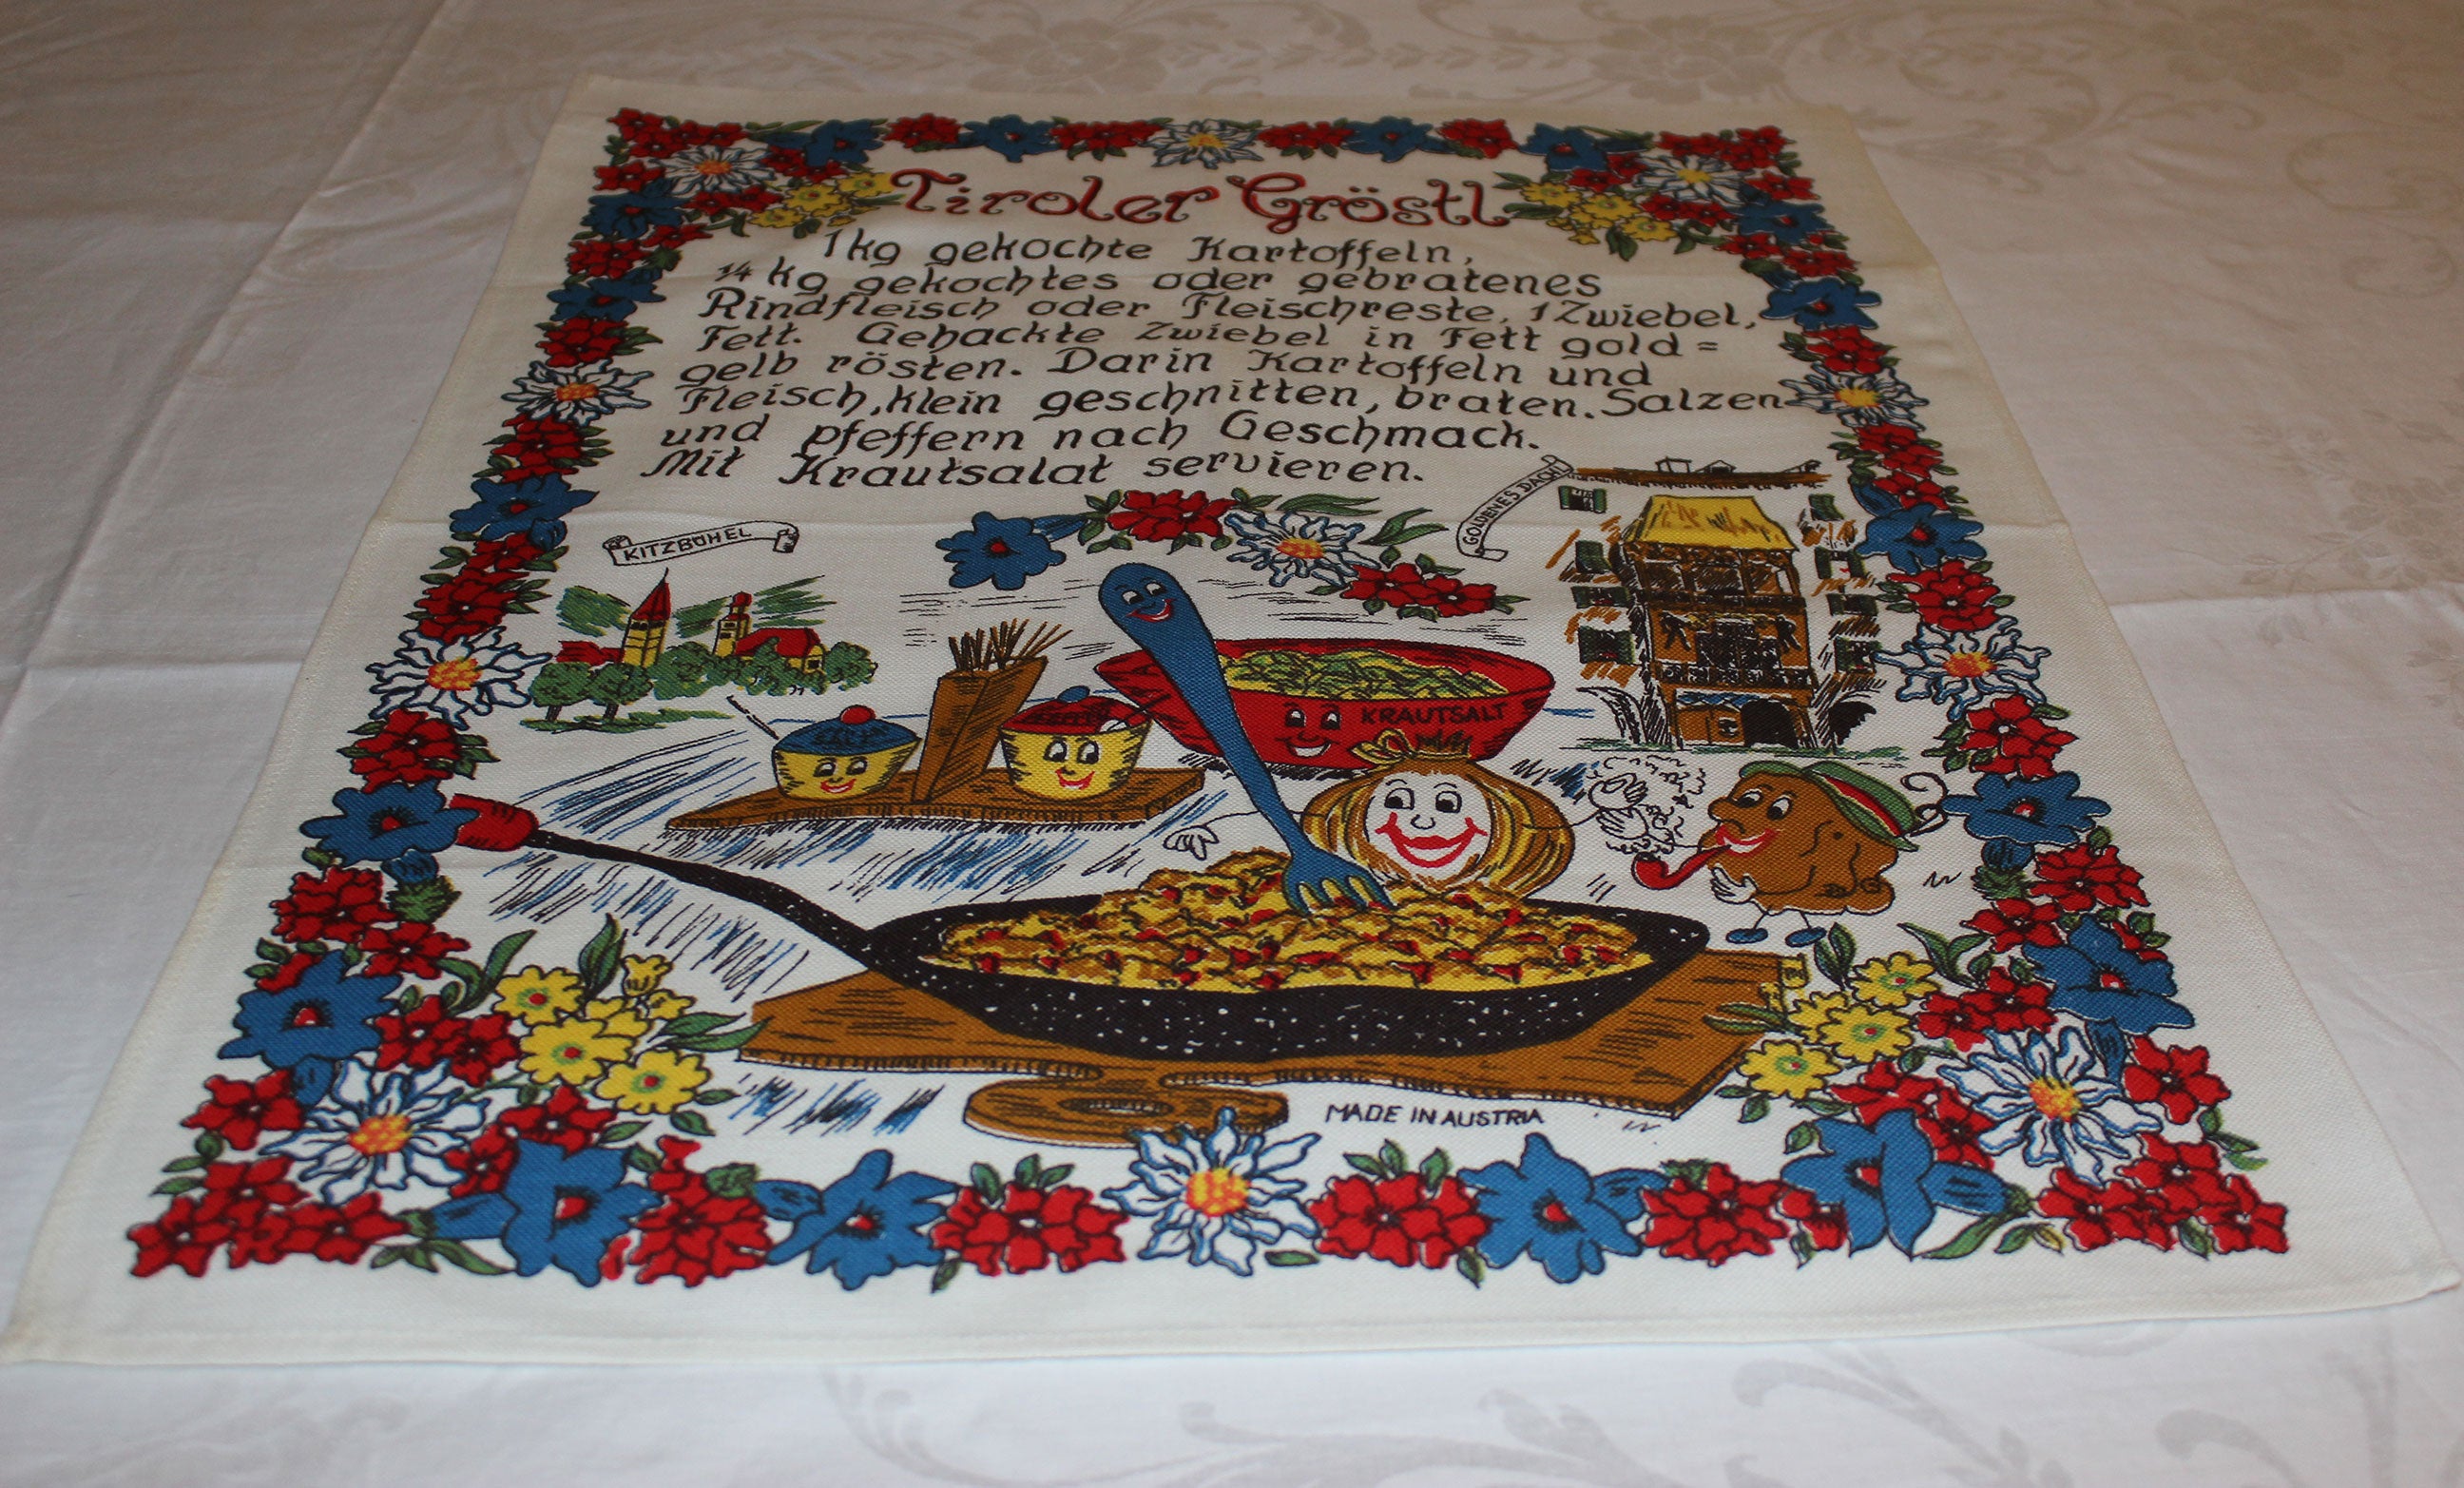 Tiroler Gröstl
1kg gekochte Kartoffeln,
1/4 kg gekochtes oder gebratenes
Rindfleisch oder Fleischreste, 1 Zwiebel,
Fett. Gehackte Zwiebel in Fett gold=
gelb rösten. Darin Kartoffeln und
Fleisch, klein geschnitten, braten. Salzen
und pfeffern nach Geschmack.
Mit Krautsalat servieren.
GOLDENES DACHL
KITZBÜHEL
KRAUTSALT
MADE IN AUSTRIA